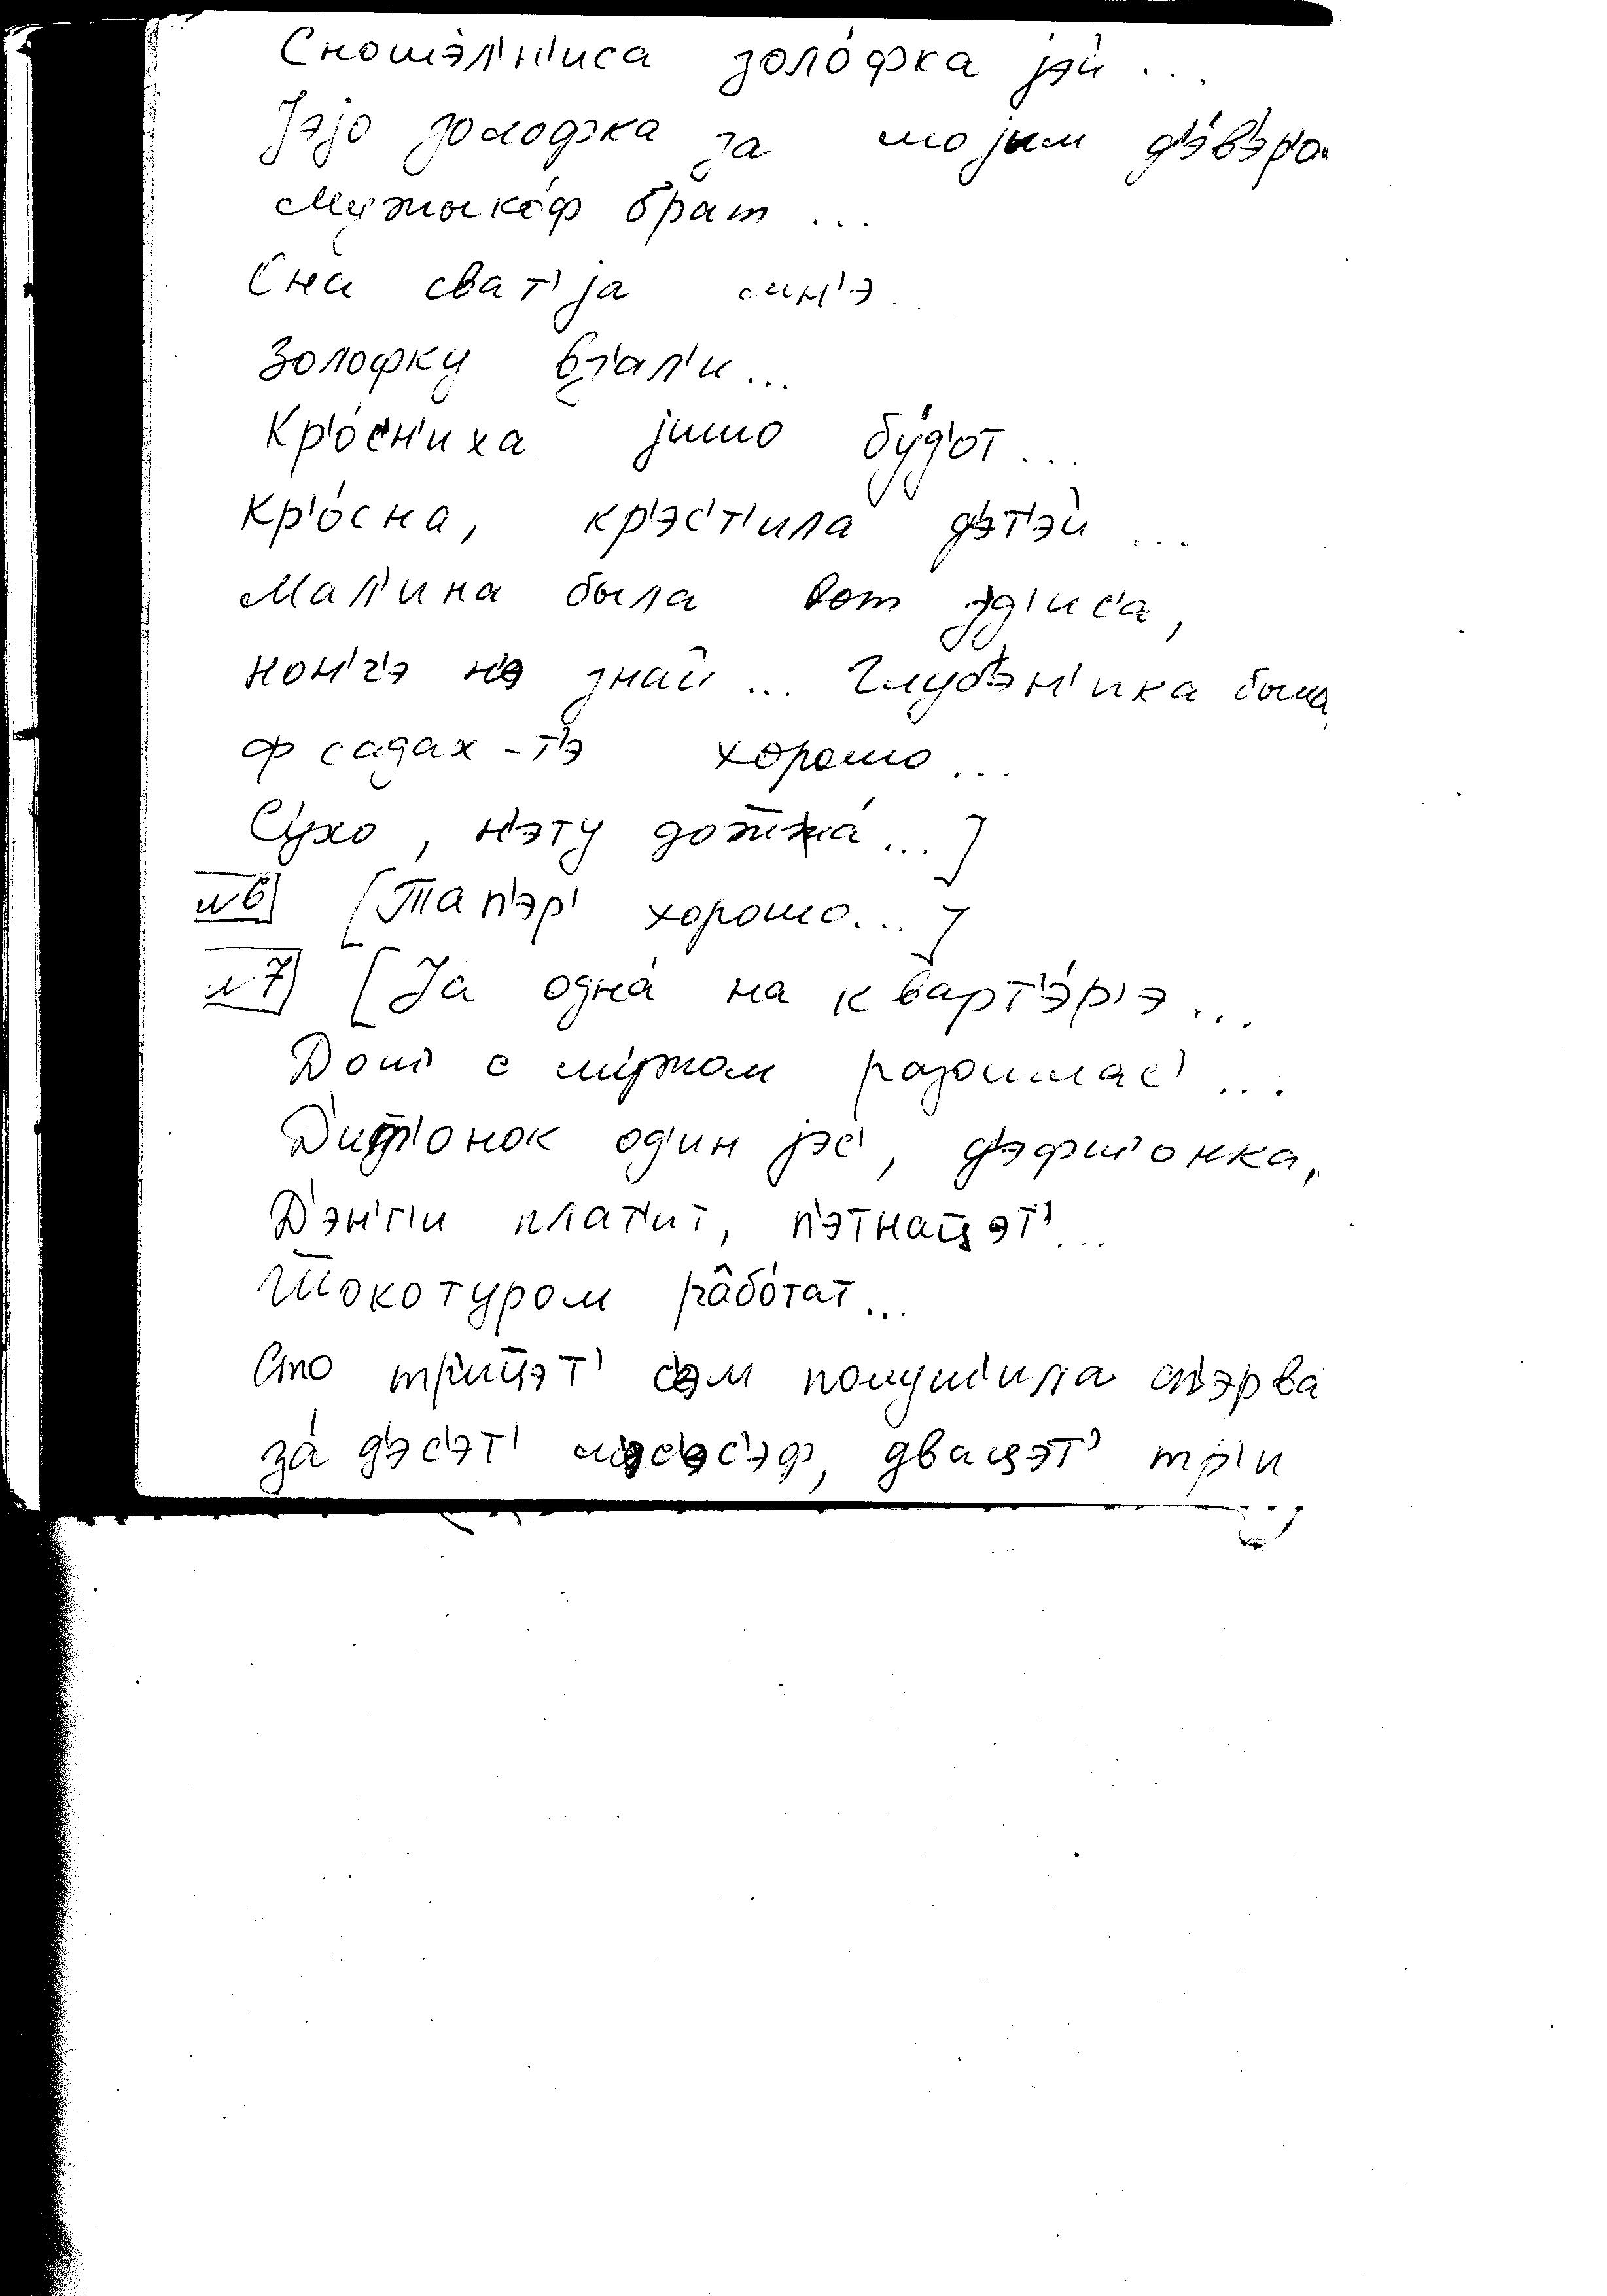 Сношэл'н'иса золо́фка jэй ...
Jэjо золофка за моjим д'э́в'эр'о
Мужыко́ф брат ...
Она сват'jа мн'э.
Золофку вз'ал'и ...
Кр'о́сн'иха jишо бу́д'от ...
Кр'о́сна, кр'эс'т'ила д'эт'эй ...
Мал'ина была вот зд'ис'а,
нон'г'э н'э знай ... Глуб'эн'ика была
ф садах-т'э хорошо ...
Су́хо, н'эту дожжа́ ...]
№6] [Тап'эр' хорошо...]
№7] [Jа одна́ на кварт'э́р'э ...
Доч' с му́жом разошлас' ...
Д'ит'онок од'ин jэс', д'эфч'онка,
Д'эн'г'и плат'ит, п'этнацэт' ...
Штокотуром рабо́тат ...
Сто тр'ицэт' с'эм получ'ила сп'эрва
за́ д'эс'эт' м'эс'эс'эф, двацэт' тр'и